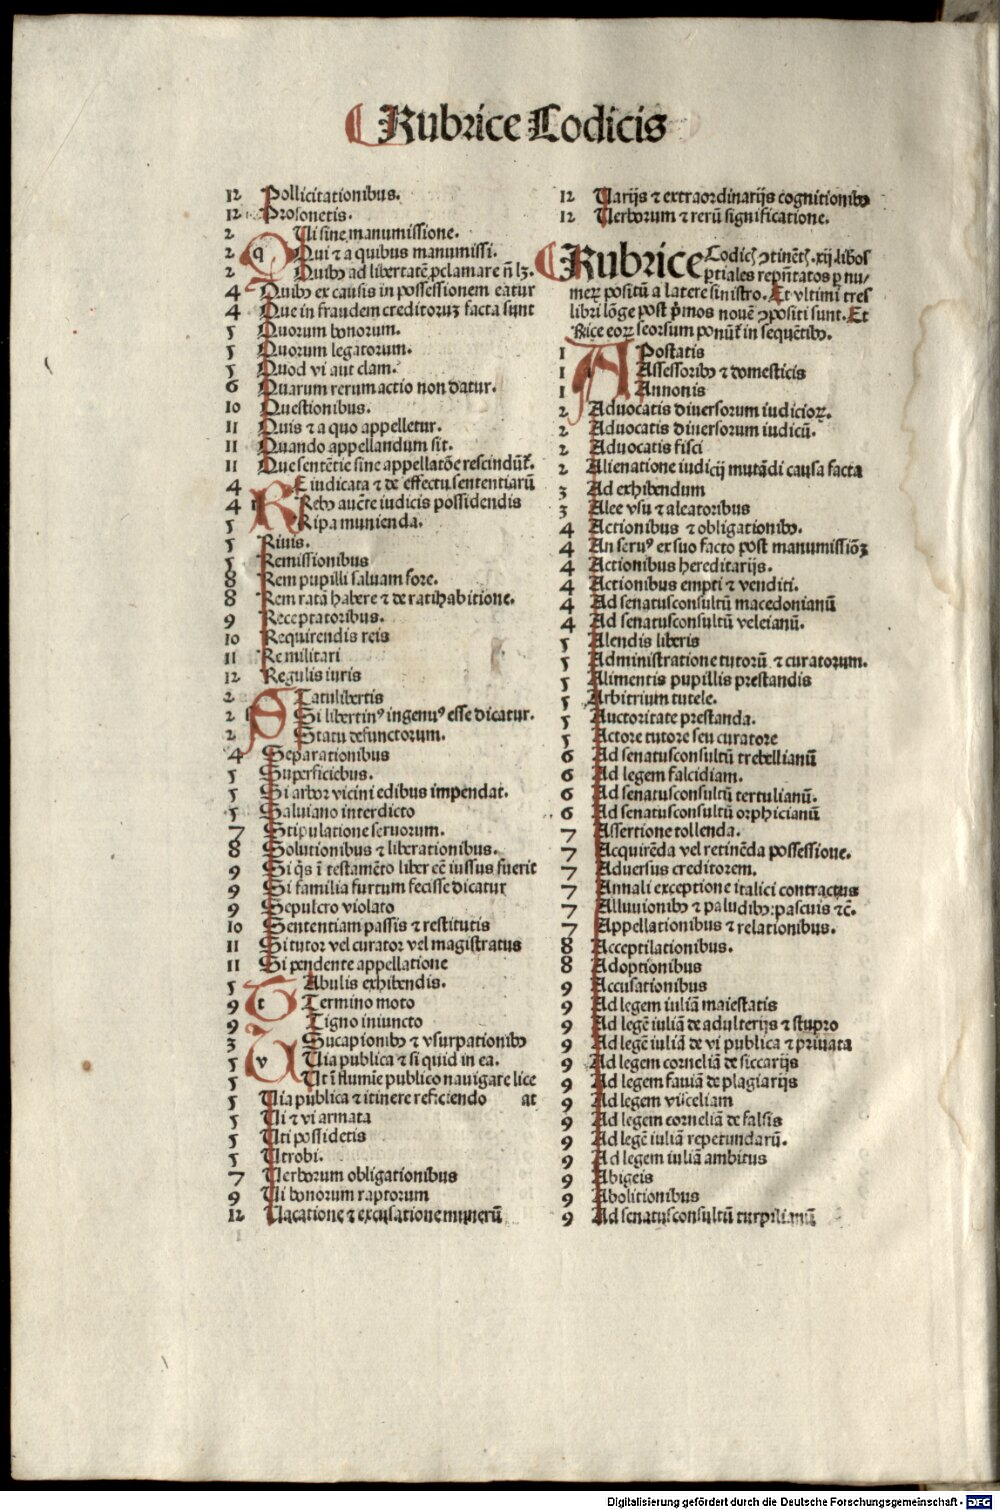 Rubrice Codicis
12 Pollicitationibus.
12 Prosonetis.
2 Qui sine manumissione.
2 Qui ⁊ a quibus manumissi.
2 Quibꝰ ad libertatē ꝓclamare nō lꝫ.
4 Quibꝰ ex causis in possessionem eatur
4 Que in fraudem creditoruꝫ facta sunt
5 Quorum bonorum.
5 Quorum legatorum.
5 Quod vi aut clam.
6 Quarum rerum actio non datur.
10 Questionibus.
11 Quis ⁊ a quo appelletur.
11 Quando appellandum sit.
11 Que sentētie sine appellatōe rescindūt̄.
4 RE iudicata ⁊ de effectu sententiarū
4 Rebꝰ aucte iudicis possidendis
5 Ripa munienda.
5 Riuis.
5 Remissionibus
8 Rem pupilli saluam fore.
8 Rem ratā habere ⁊ de ratihabitione.
9 Receptatoribus.
10 Requirendis reis
11 Re militari
12 Regulis iuris
2 STatulibertis
2 Si libertinꝰ ingenuꝰ esse dicatur.
2 Statu defunctorum.
4 Separationibus
5 Superficiebus.
5 Si arbor vicini edibus impendat.
5 Saluiano interdicto
7 Stipulatione seruorum.
8 Solutionibus ⁊ liberationibus.
9 Si q̄s ī testamēto liber eē iussus fuerit
9 Si familia furtum fecisse dicatur
9 Sepulcro violato
10 Sententiam passis ⁊ restitutis
11 Si tutor vel curator vel magistratus
11 Si pendente appellatione
5 TAbulis exhibendis.
9 Termino moto
9 Tigno iniuncto
3 VSucapionibꝰ ⁊ vsurpationibꝰ
5 Uia publica ⁊ si quid in ea.
5 Ut ī flumīe publico nauigare lice
5 Uia publica ⁊ itinere reficiendo at
5 Ui ⁊ vi armata
5 Uti possidetis
5 Utrobi.
7 Uerborum obligationibus
9 Ui bonorum raptorum
12 Uacatione ⁊ excusatione munerū
12 Uarijs ⁊ extraordinarijs cognitionibꝰ
12 Uerborum ⁊ rerū significatione.
Rubrice Codicꝭ ꝯtinētꝭ .xij. libros
ꝑtiales repn̄tatos ꝑ nu/
meꝝ positū a latere sinistro. Et vltimi tres
libri lōge post p̄mos nouē ꝯpositi sunt. Et
Rꝛice eoꝝ seorsum ponūt̄ in sequētibꝰ.
1 APostatis
1 Assessoribꝰ ⁊ domesticis
1 Annonis
2 Aduocatis diuersorum iudicioꝝ.
2 Aduocatis diuersorum iudicū.
2 Aduocatis fisci
2 Alienatione iudicij mutādi causa facta
3 Ad exhibendum
3 Alee vsu ⁊ aleatoribus
4 Actionibus ⁊ obligationibꝰ.
4 An seruꝰ ex suo facto post manumissiōꝫ
4 Actionibus hereditarijs.
4 Actionibus empti ⁊ venditi.
4 Ad senatusconsultū macedonianū
4 Ad senatusconsultū veleianū.
5 Alendis liberis
5 Administratione tutorū ⁊ curatorum.
5 Alimentis pupillis prestandis
5 Arbitrium tutele.
5 Auctoritate prestanda.
5 Actore tutore seu curatore
6 Ad senatusconsultū trebellianū
6 Ad legem falcidiam.
6 Ad senatusconsultū tertulianū.
6 Ad senatusconsultū orphicianū
7 Assertione tollenda.
7 Acquirēda vel retinēda possessione.
7 Aduersus creditorem.
7 Annali exceptione italici contractus
7 Alluuionibꝰ ⁊ paludibꝰ: pascuis ⁊c̄.
7 Appellationibus ⁊ relationibus.
8 Acceptilationibus.
8 Adoptionibus
9 Accusationibus
9 Ad legem iuliā maiestatis
9 Ad legē iuliā de adulterijs ⁊ stupro
9 Ad legē iuliā de vi publica ⁊ priuata
9 Ad legem corneliā de siccarijs
9 Ad legem fauiā de plagiarijs
9 Ad legem viceliam
9 Ad legem corneliā de falsis
9 Ad legē iuliā repetundarū.
9 Ad legem iuliā ambitus
9 Abigeis
9 Abolitionibus
9 Ad senatusconsultū turpilianū
Digitalisierung gefördert durch die Deutsche Forschungsgemeinschaft - DFG